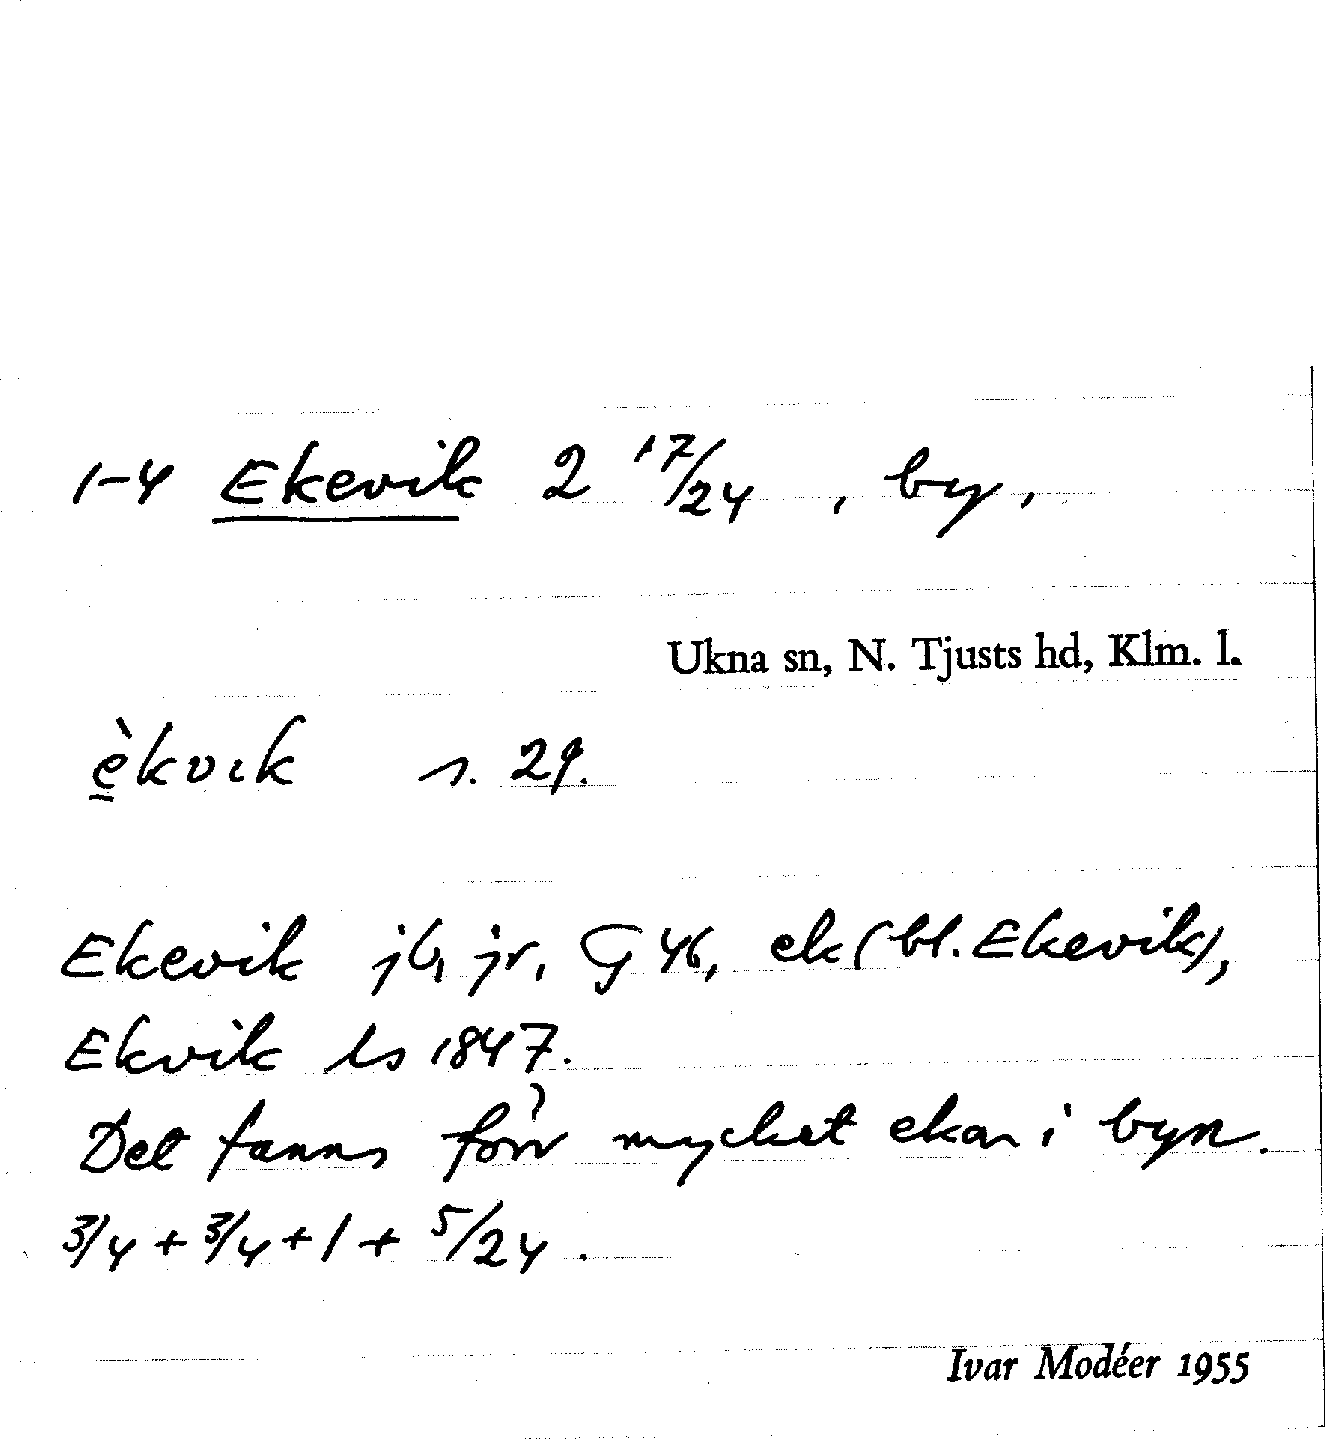 1-4 Ekevik 2 17/24, by,
Ukna sn, N. Tjusts hd, Klm. l.
èkvık s. 29.
Ekevik jb, jr, G 46, ek (bl. Ekevik),
Ekvik ls 1847.
Det fanns förr mycket ekar i byn.
3/4 + 3/4 + 1 + 5/24.
Ivar Modéer 1955